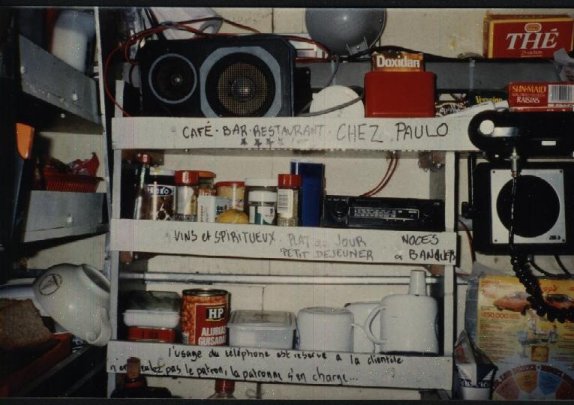 THÉ
Doxidan
SUN-MAID
RAISINS
CAFÉ - BAR - RESTAURANT - CHEZ PAULO
VINS et SPIRITUEUX - PLAT du JOUR
NOCES
PETIT DEJEUNER
et BANQUETS
HP
ALUBIAS
GUISADAS
l'usage du téléphone est réservé à la clientèle
pas le patron, la patronne s'en charge...